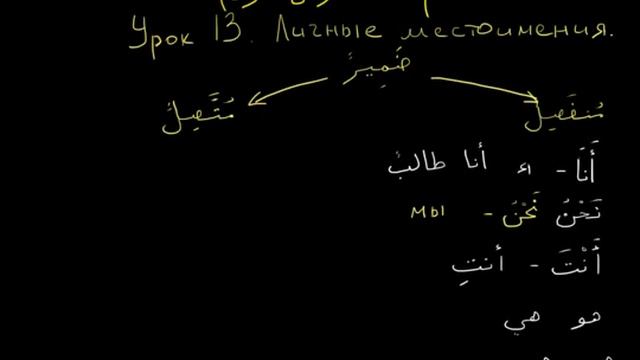 Урок 13. Личные местоимения.
ضَمِيرٌ
مُنفَصِلٌ مُتَّصِلٌ
أَنَا - أنا طالبٌ
نَحْنُ نَحْنُ - мы
أَنْتَ - أنتِ
هو هي